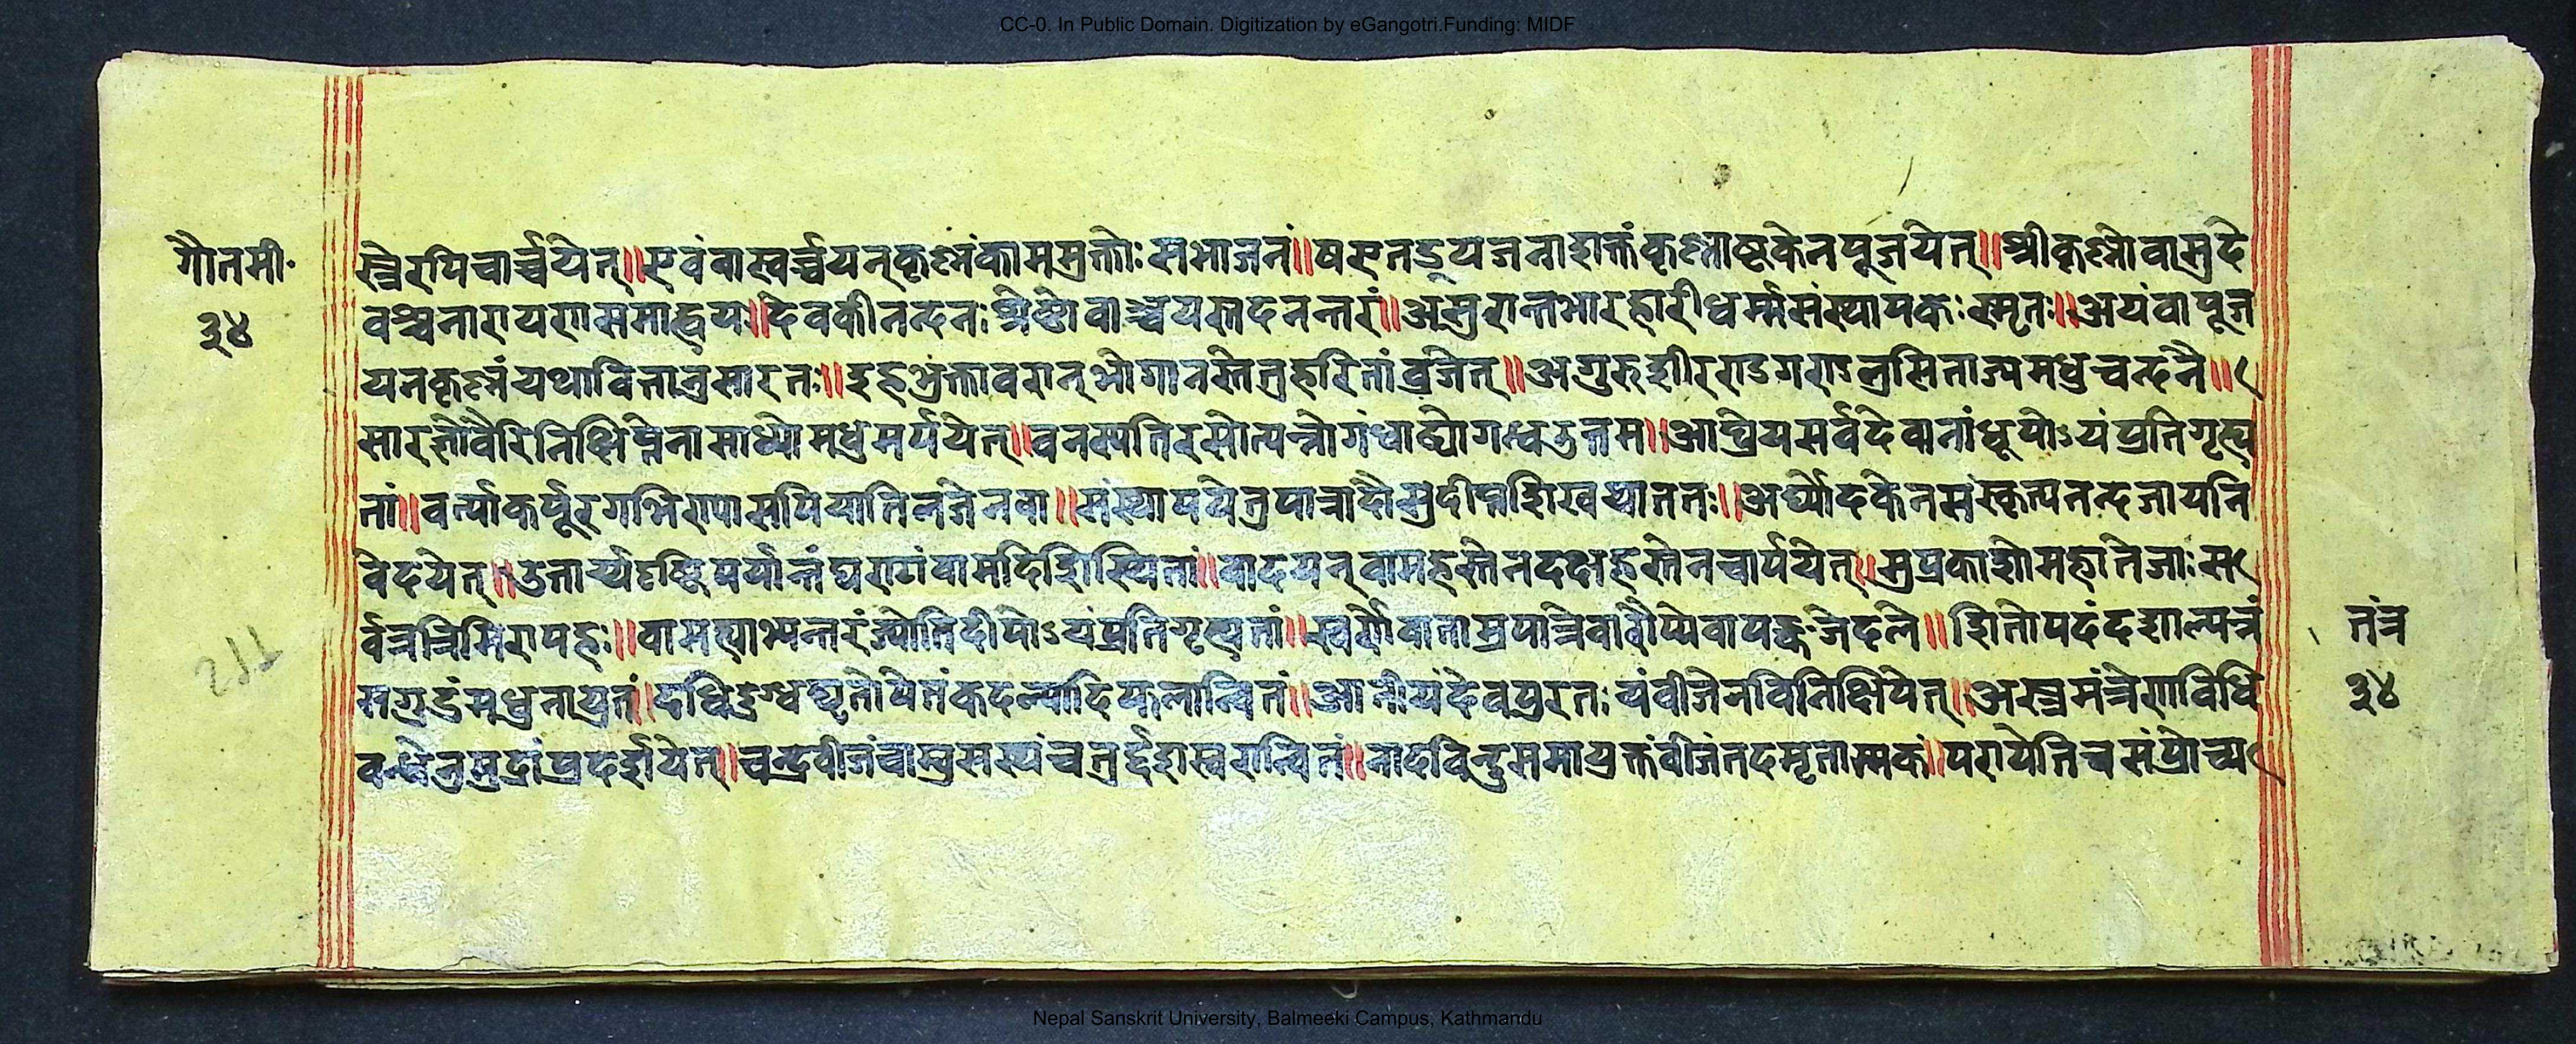 CC-0. In Public Domain. Digitization by eGangotri.Funding: MIDF
गौतमी॰
३४
स्त्रैरपिचार्च्चयेत्॥एवंवास्वर्च्चयन्कृष्णंकामममुक्तोः सभाजनं॥ कृष्णाष्टकेनपूजयेत्॥श्रीकृष्णोवासुदे
वश्चनारायणसमाह्वयः॥देवकीनन्दनःश्रेष्ठोवार्ष्णेयस्तदनन्तरं॥असुरान्तभारहारीधर्म्मसंस्थापकःस्मृतः॥अयंवापूज
यनकृष्णंयथावित्तानुसारतः॥इहभुंक्तावरान्भोगानन्तेतुहरितांव्रजेत्॥ मधुचन्दनै॥
सारङ्गो मर्पयेत्॥वनस्पतिरसोत्पन्नोगंधाढ्योगन्धउत्तम॥आघ्रेयसर्वदेवानांधूपोऽयंप्रतिगृह्य
तां॥वर्त्त्याकर्पूरगर्भिण्या वा॥संस्थापयेत्रुपात्रादौसुदीप्तशिखयाततः॥अर्घ्योदकेनसंस्कृत्यनन्दजायनि
वेदयेत्॥उत्तार्य्यदृष्टिपर्यान्तंघण्टांवामदिशिस्थितां॥वादयन्वामहस्तेनदक्षहस्तेनचार्पयेत्॥सुप्रकाशोमहातेजाःस
र्वत्रत्रिमिरापहः॥वामह्याभ्यन्तरंज्योतिदीपोऽयंप्रतिगृह्यतां॥स्वर्णेवाताम्रपात्रेवारौप्येवापङ्कजेदले॥
सगुडंमधुनाप्लुतं॥दधिदुग्धघृतोपेतंकदल्यादिफलान्वितं॥आनीयदेवपुरतः विनिक्षिपेत्॥अस्त्रमंत्रेणविधि
वन्धेनुमुद्रांप्रदर्शयेत्॥चन्द्रबीजं चतुर्द्दशस्वरान्वितं॥नादविन्दुसमायुक्तंवीजंतदमृतात्मकं॥ संप्रोच्य
तंत्र
३४
Nepal Sanskrit University, Balmeeki Campus, Kathmandu